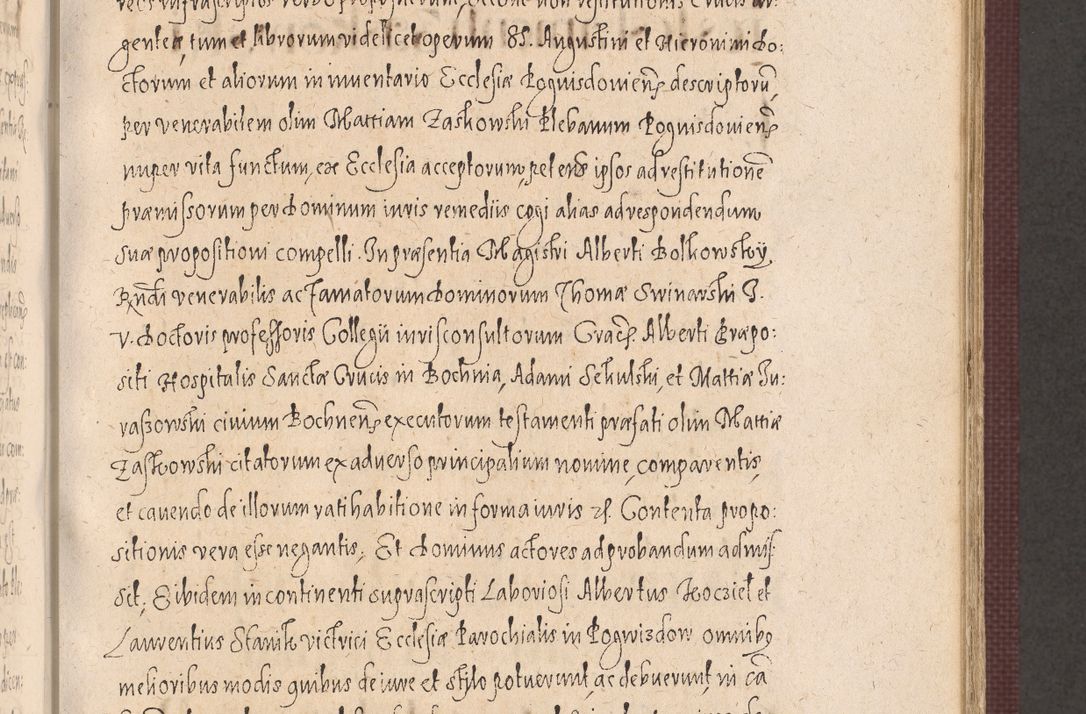 genteæ, tum et librorum videlicet operum SS. Augustini et Hieronimi do:
ctorum et aliorum in inventario Ecclesiæ Pogwisdovien̄. descriptorū,
per venerabilem olim Mattiam Zaskowski Plebanum Pogwisdovien̄.
nuper vita functum, ex Ecclesia acceptorum, petens ipsos ad restitutionē
præmissorum per dominum iuris remediis cogi alias ad respondendum
suæ propositioni compelli. In præsentia Magistri Alberti Bolkowsky,
Rndi venerabilis ac famatorum dominorum Thomæ Swinarski J.
V. doctoris professoris Collegii iurisconsultorum Crac. Alberti Præpo:
siti Hospitalis Sanctæ Crucis in Bochnia, Adami Sekulski, et Mattiæ Ju:
raszowski civium Bochnen̄. executorum testamenti præfati olim Mattiæ
Zaskowski citatorum ex adverso principalium nomine, comparentis,
et cavendo de illorum ratihabitione in forma iuris etc. Contenta propo:
sitionis vera esse negantis. Et dominus actores ad probandum admis
sit. Eibidem in continenti suprascripti Laboriosi Albertus Koczieł et
Laurentius Stanik victrici Ecclesiæ Parochialis in Pogwizdow omnibꝫ
melioribus modis quibus de iure et stylo potuerunt, ac debuerunt, in cā